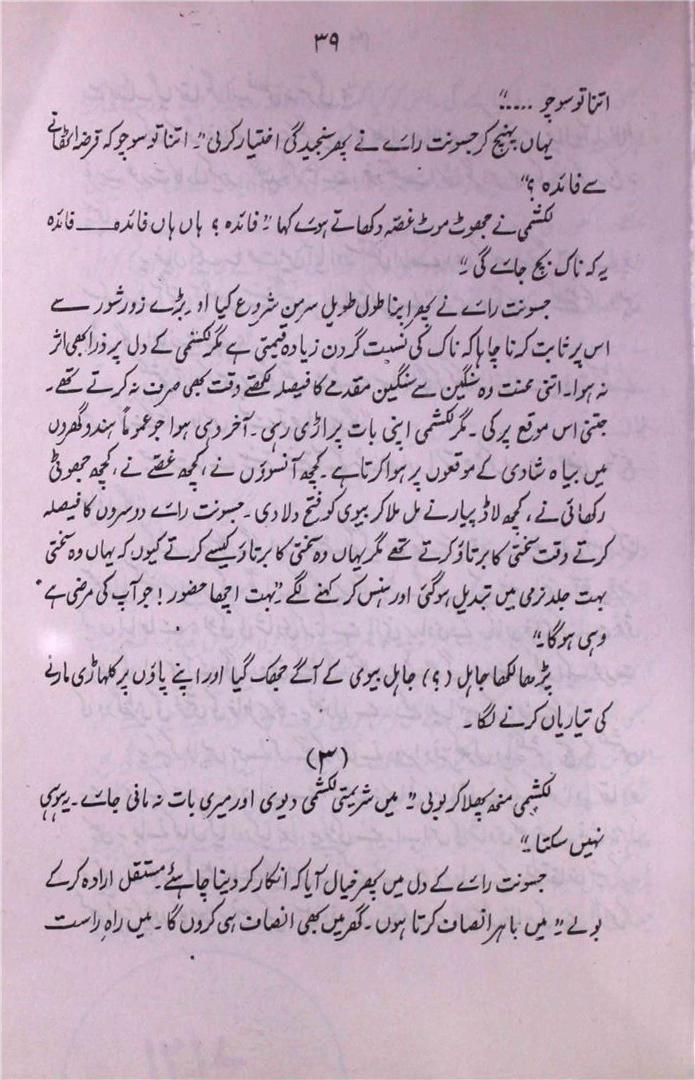 ۳۹
اتنا تو سوچو ....."
یہاں پہنچ کر جسونت رائے نے پھر سنجیدگی اختیار کر لی "۔ اتنا تو سوچو کہ قرضہ اٹھانے
سے فائدہ ؟"
لکشمی نے جھوٹ موٹ غصہ دکھاتے ہوئے کہا "۔ فائدہ ؟ ہاں ہاں فائدہ ــــ فائدہ
یہ کہ ناک بچ جائے گی "۔
جسونت رائے نے پھر اپنا طول طویل سرمن شروع کیا اور بڑے زور شور سے
اس پر ثابت کرنا چاہا کہ ناک کی نسبت گردن زیادہ قیمتی ہے مگر لکشمی کے دل پر ذرا بھی اثر
نہ ہوا۔ اتنی محنت وہ سنگین سے سنگین مقدمے کا فیصلہ لکھتے وقت بھی صرف نہ کرتے تھے۔
جتنی اس موقع پر کی۔ مگر لکشمی اپنی بات پر اڑی رہی۔ آخر وہی ہوا جو عموماً ہندو گھروں
میں بیاہ شادی کے موقعوں پر ہوا کرتا ہے۔ کچھ آنسوؤں نے، کچھ غصّے نے، کچھ جھوٹی
رکھائی نے، کچھ لاڈ پیار نے مل ملا کر بیوی کو فتح دلا دی۔ جسونت رائے دوسروں کا فیصلہ
کرتے وقت سختی کا برتاؤ کرتے تھے مگر یہاں وہ سختی کا برتاؤ کیسے کرتے کیوں کہ یہاں وہ سختی
بہت جلد نرمی میں تبدیل ہو گئی اور ہنس کر کہنے لگے "بہت اچھا حضور! جو آپ کی مرضی ہے
وہی ہو گا۔"
پڑھا لکھا جاہل (؟) جاہل بیوی کے آگے جھک گیا اور اپنے پاؤں پر کلہاڑی مارنے
کی تیاریاں کرنے لگا۔
(۳)
لکشمی منھ پھلا کر بولی "۔ میں شریمتی لکشمی دیوی اور میری بات نہ مانی جائے۔ یہ ہوہی
نہیں سکتا۔"
جسونت رائے کے دل میں پھر خیال آیا کہ انکار کر دینا چاہئے۔ مستقل ارادہ کر کے
بولے "۔ میں باہر انصاف کرتا ہوں۔ گھر میں بھی انصاف ہی کروں گا۔ میں راہِ راست